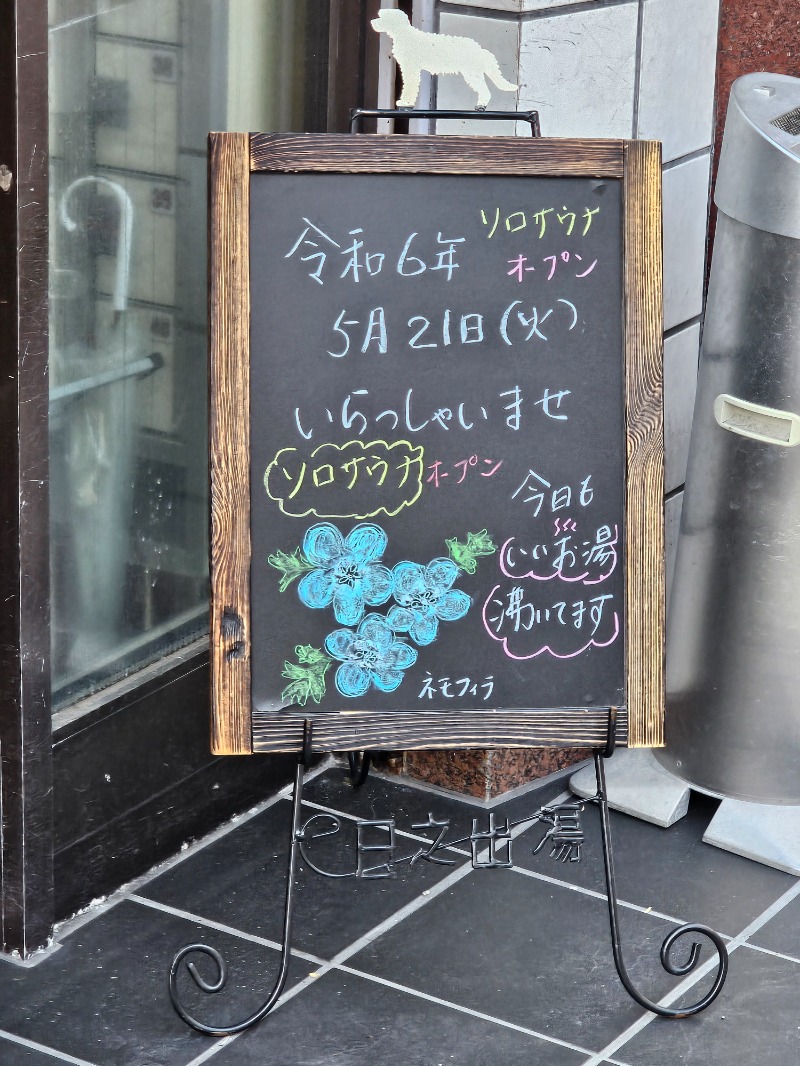 令和6年
ソロサウナ
オープン
5月21日(火)
いらっしゃいませ
ソロサウナオープン
今日も
いいお湯
沸いてます
ネモフィラ
日之出湯